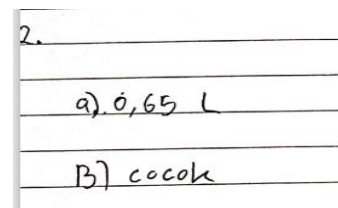 2.
a). 0,65 L
B) cocok